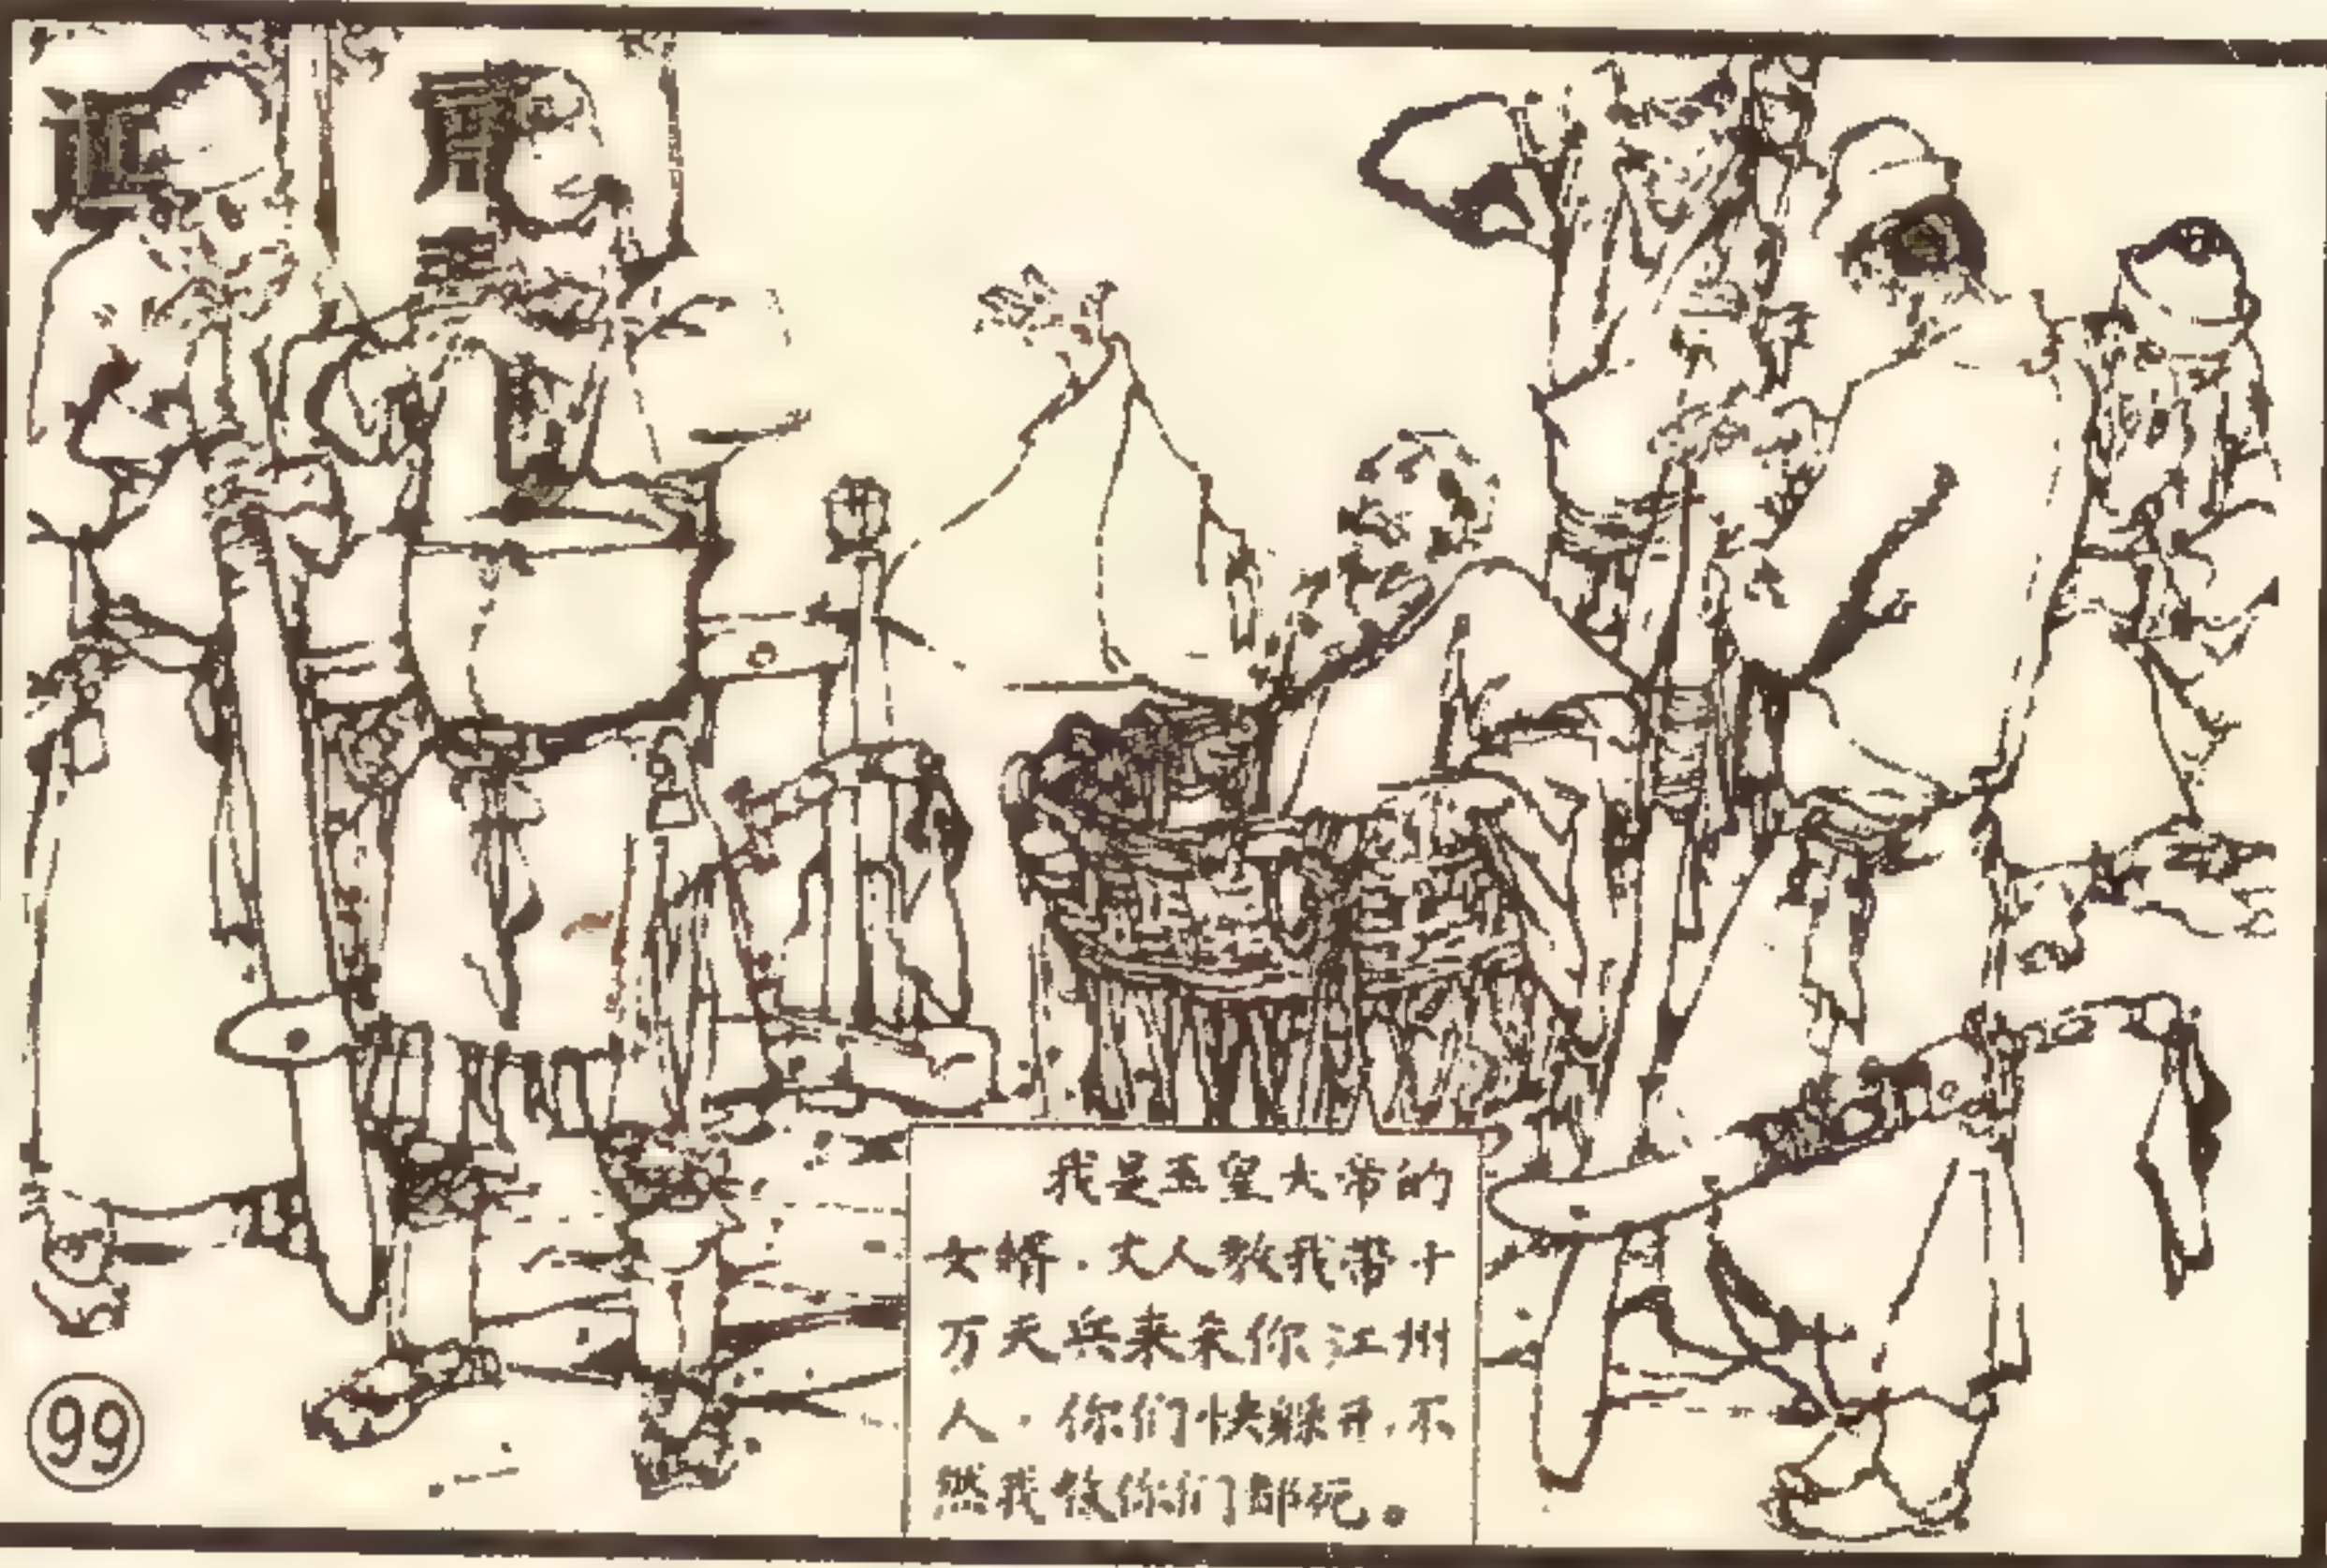 我是玉皇大帝的
女婿．丈人教我带十
万天兵来杀你江州
人．你们快躲开，不
然我教你们都死。
99